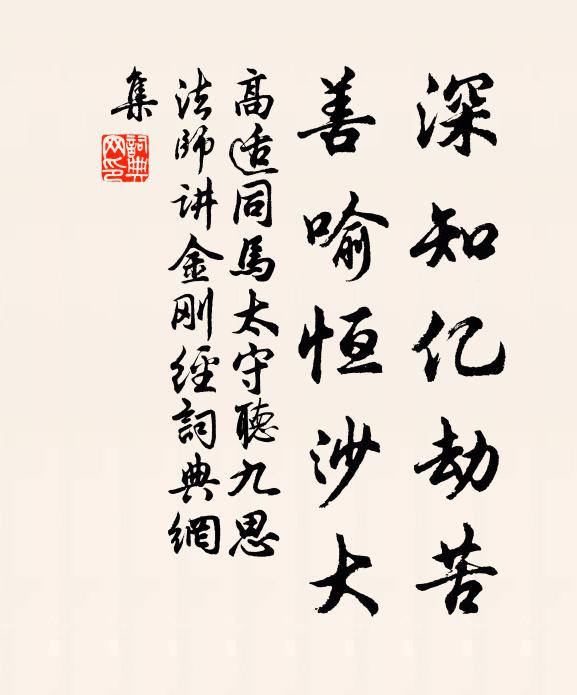 深知亿劫苦
善喻恒沙大
高适同馬太守聽九思
法師讲金刚經詞典網
集
詞典網印